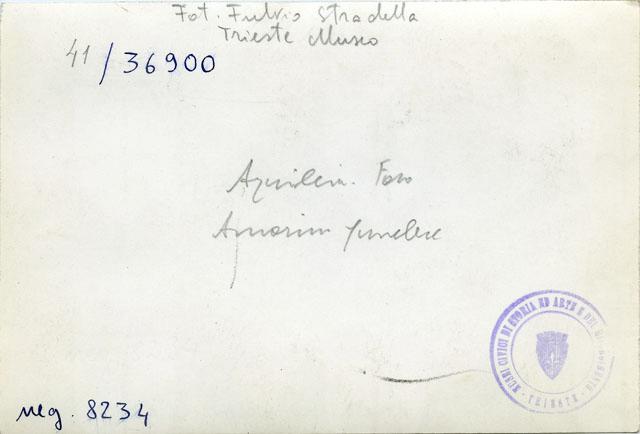 Fot. Fulvio Stradella
Trieste Museo
41/36900
Aquileia. Foro
Amorino funebre
MUSEI CIVICI DI STORIA ED ARTE E DEL
TRIESTE
neg. 8234